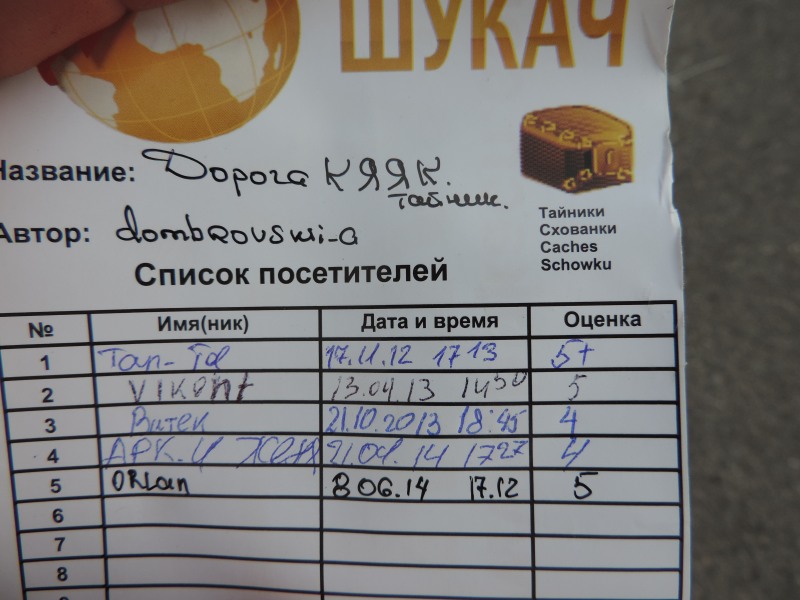 ШУКАЧ
Название: Дорога КЯЯК.
тайник.
Автор: dombrovski-a
Тайники
Схованки
Caches
Schowku
Список посетителей
№ Имя(ник) Дата и время Оценка
1 17.11.12 17 13 5+
2 Vikont 13.04.13 14 30 5
3 Витек 21.10.2013 18:45 4
4 АРК. И ЖЕН 14 17 27 4
5 ORLan 8 06.14 17.12 5
6
7
8